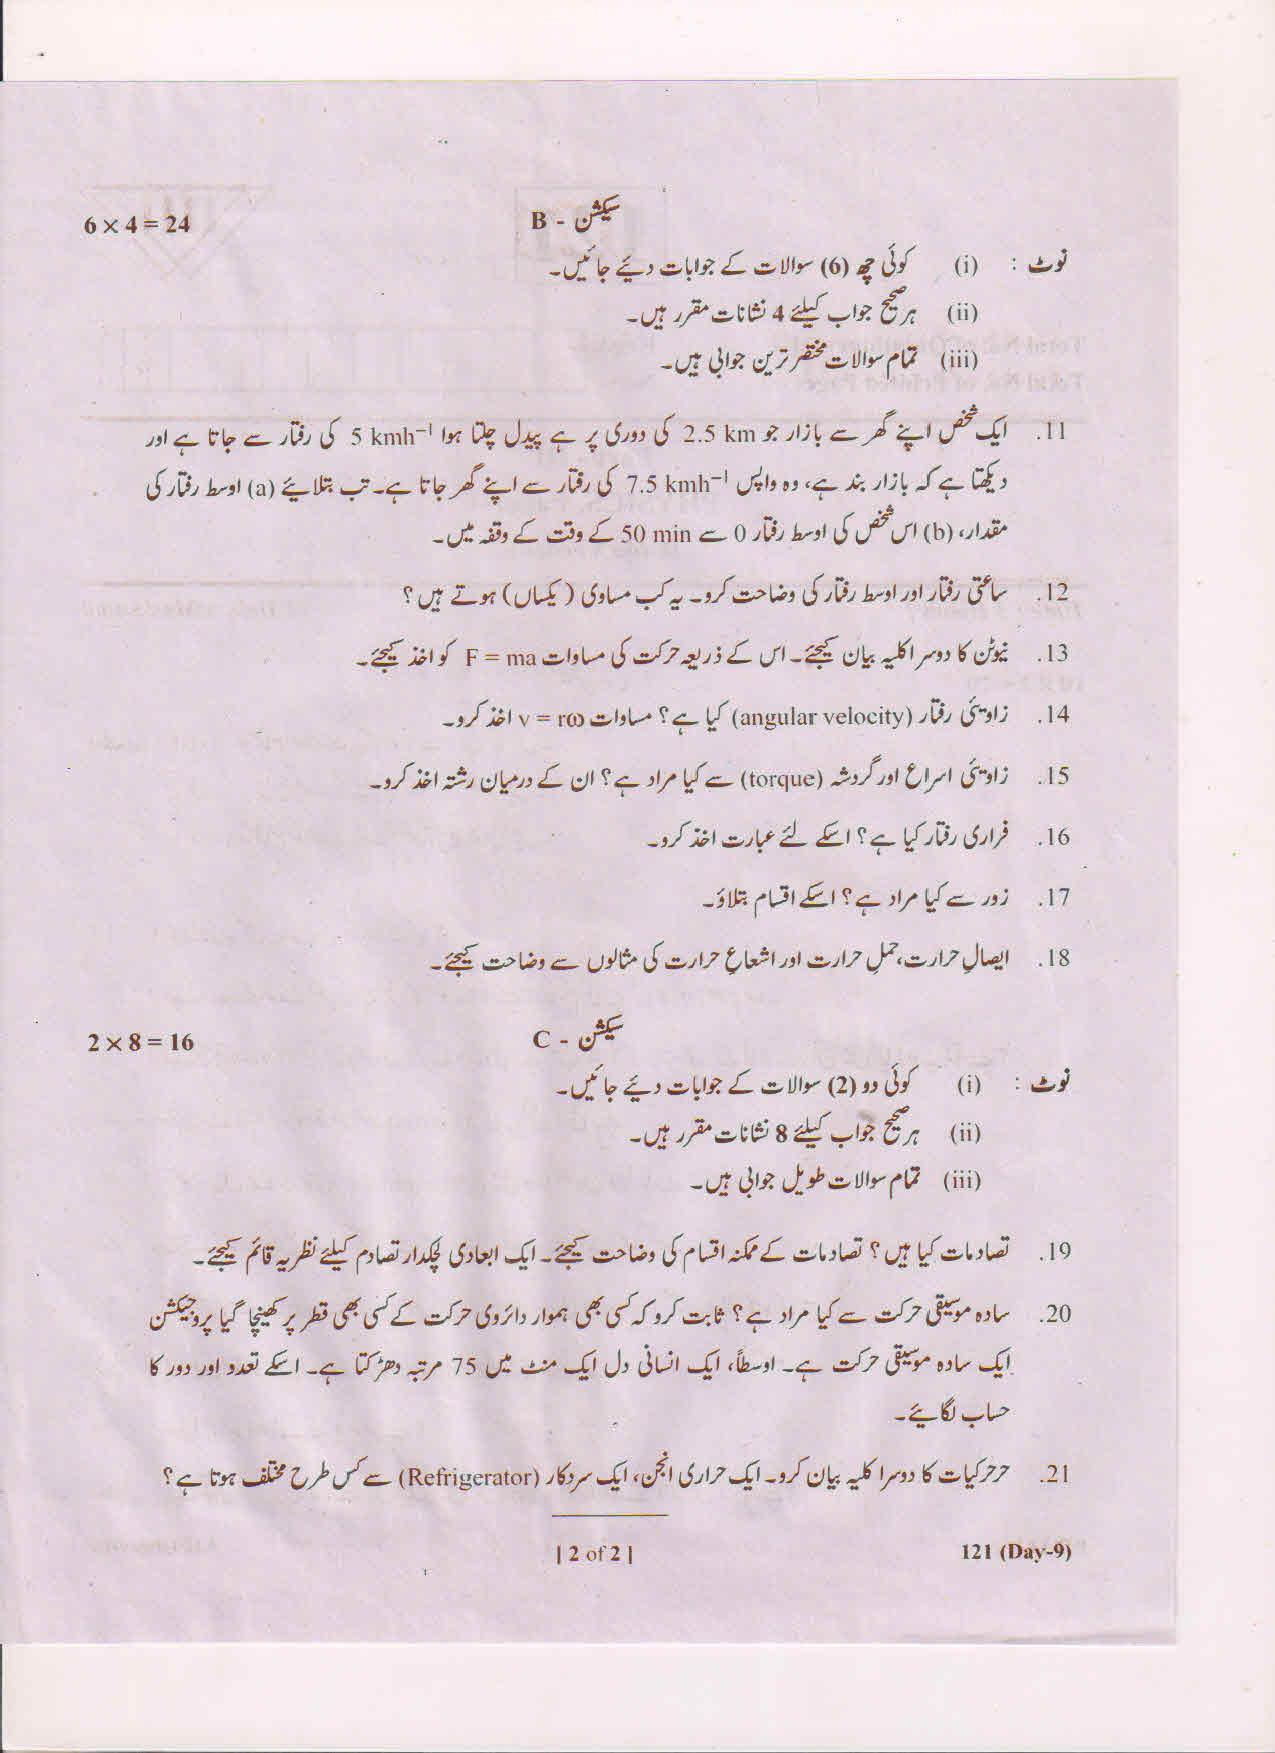 6 × 4 = 24
سیکشن - B
نوٹ : (i) کوئی چھ (6) سوالات کے جوابات دیئے جائیں۔
(ii) ہر صحیح جواب کیلئے 4 نشانات مقرر ہیں۔
(iii) تمام سوالات مختصر ترین جوابی ہیں۔
11. ایک شخص اپنے گھر سے بازار جو 2.5 km کی دوری پر ہے پیدل چلتا ہوا 5 kmh⁻¹ کی رفتار سے جاتا ہے اور
دیکھتا ہے کہ بازار بند ہے، وہ واپس 7.5 kmh⁻¹ کی رفتار سے اپنے گھر جاتا ہے۔ تب بتلایئے (a) اوسط رفتار کی
مقدار، (b) اس شخص کی اوسط رفتار 0 سے 50 min کے وقت کے وقفہ میں۔
12. ساعتی رفتار اور اوسط رفتار کی وضاحت کرو۔ یہ کب مساوی (یکساں) ہوتے ہیں؟
13. نیوٹن کا دوسرا کلیہ بیان کیجئے۔ اس کے ذریعہ حرکت کی مساوات F = ma کو اخذ کیجئے۔
14. زاویئی رفتار (angular velocity) کیا ہے؟ مساوات v = rω اخذ کرو۔
15. زاویئی اسراع اور گردشہ (torque) سے کیا مراد ہے؟ ان کے درمیان رشتہ اخذ کرو۔
16. فراری رفتار کیا ہے؟ اسکے لئے عبارت اخذ کرو۔
17. زور سے کیا مراد ہے؟ اسکے اقسام بتلاؤ۔
18. ایصالِ حرارت، حملِ حرارت اور اشعاعِ حرارت کی مثالوں سے وضاحت کیجئے۔
2 × 8 = 16
سیکشن - C
نوٹ : (i) کوئی دو (2) سوالات کے جوابات دیئے جائیں۔
(ii) ہر صحیح جواب کیلئے 8 نشانات مقرر ہیں۔
(iii) تمام سوالات طویل جوابی ہیں۔
19. تصادمات کیا ہیں؟ تصادمات کے ممکنہ اقسام کی وضاحت کیجئے۔ ایک ابعادی لچکدار تصادم کیلئے نظریہ قائم کیجئے۔
20. سادہ موسیقی حرکت سے کیا مراد ہے؟ ثابت کرو کہ کسی بھی ہموار دائروی حرکت کے کسی بھی قطر پر کھینچا گیا پروجیکشن
ایک سادہ موسیقی حرکت ہے۔ اوسطاً، ایک انسانی دل ایک منٹ میں 75 مرتبہ دھڑکتا ہے۔ اسکے تعدد اور دور کا
حساب لگایئے۔
21. حرحرکیات کا دوسرا کلیہ بیان کرو۔ ایک حراری انجن، ایک سردکار (Refrigerator) سے کس طرح مختلف ہوتا ہے؟
| 2 of 2 |
121 (Day-9)